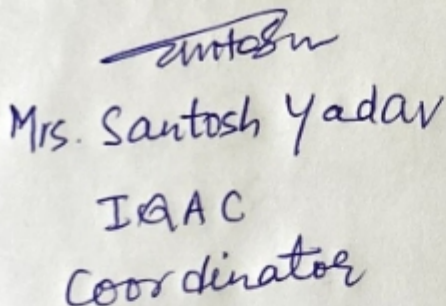 Santosh
Mrs. Santosh Yadav
IQAC
Coordinator